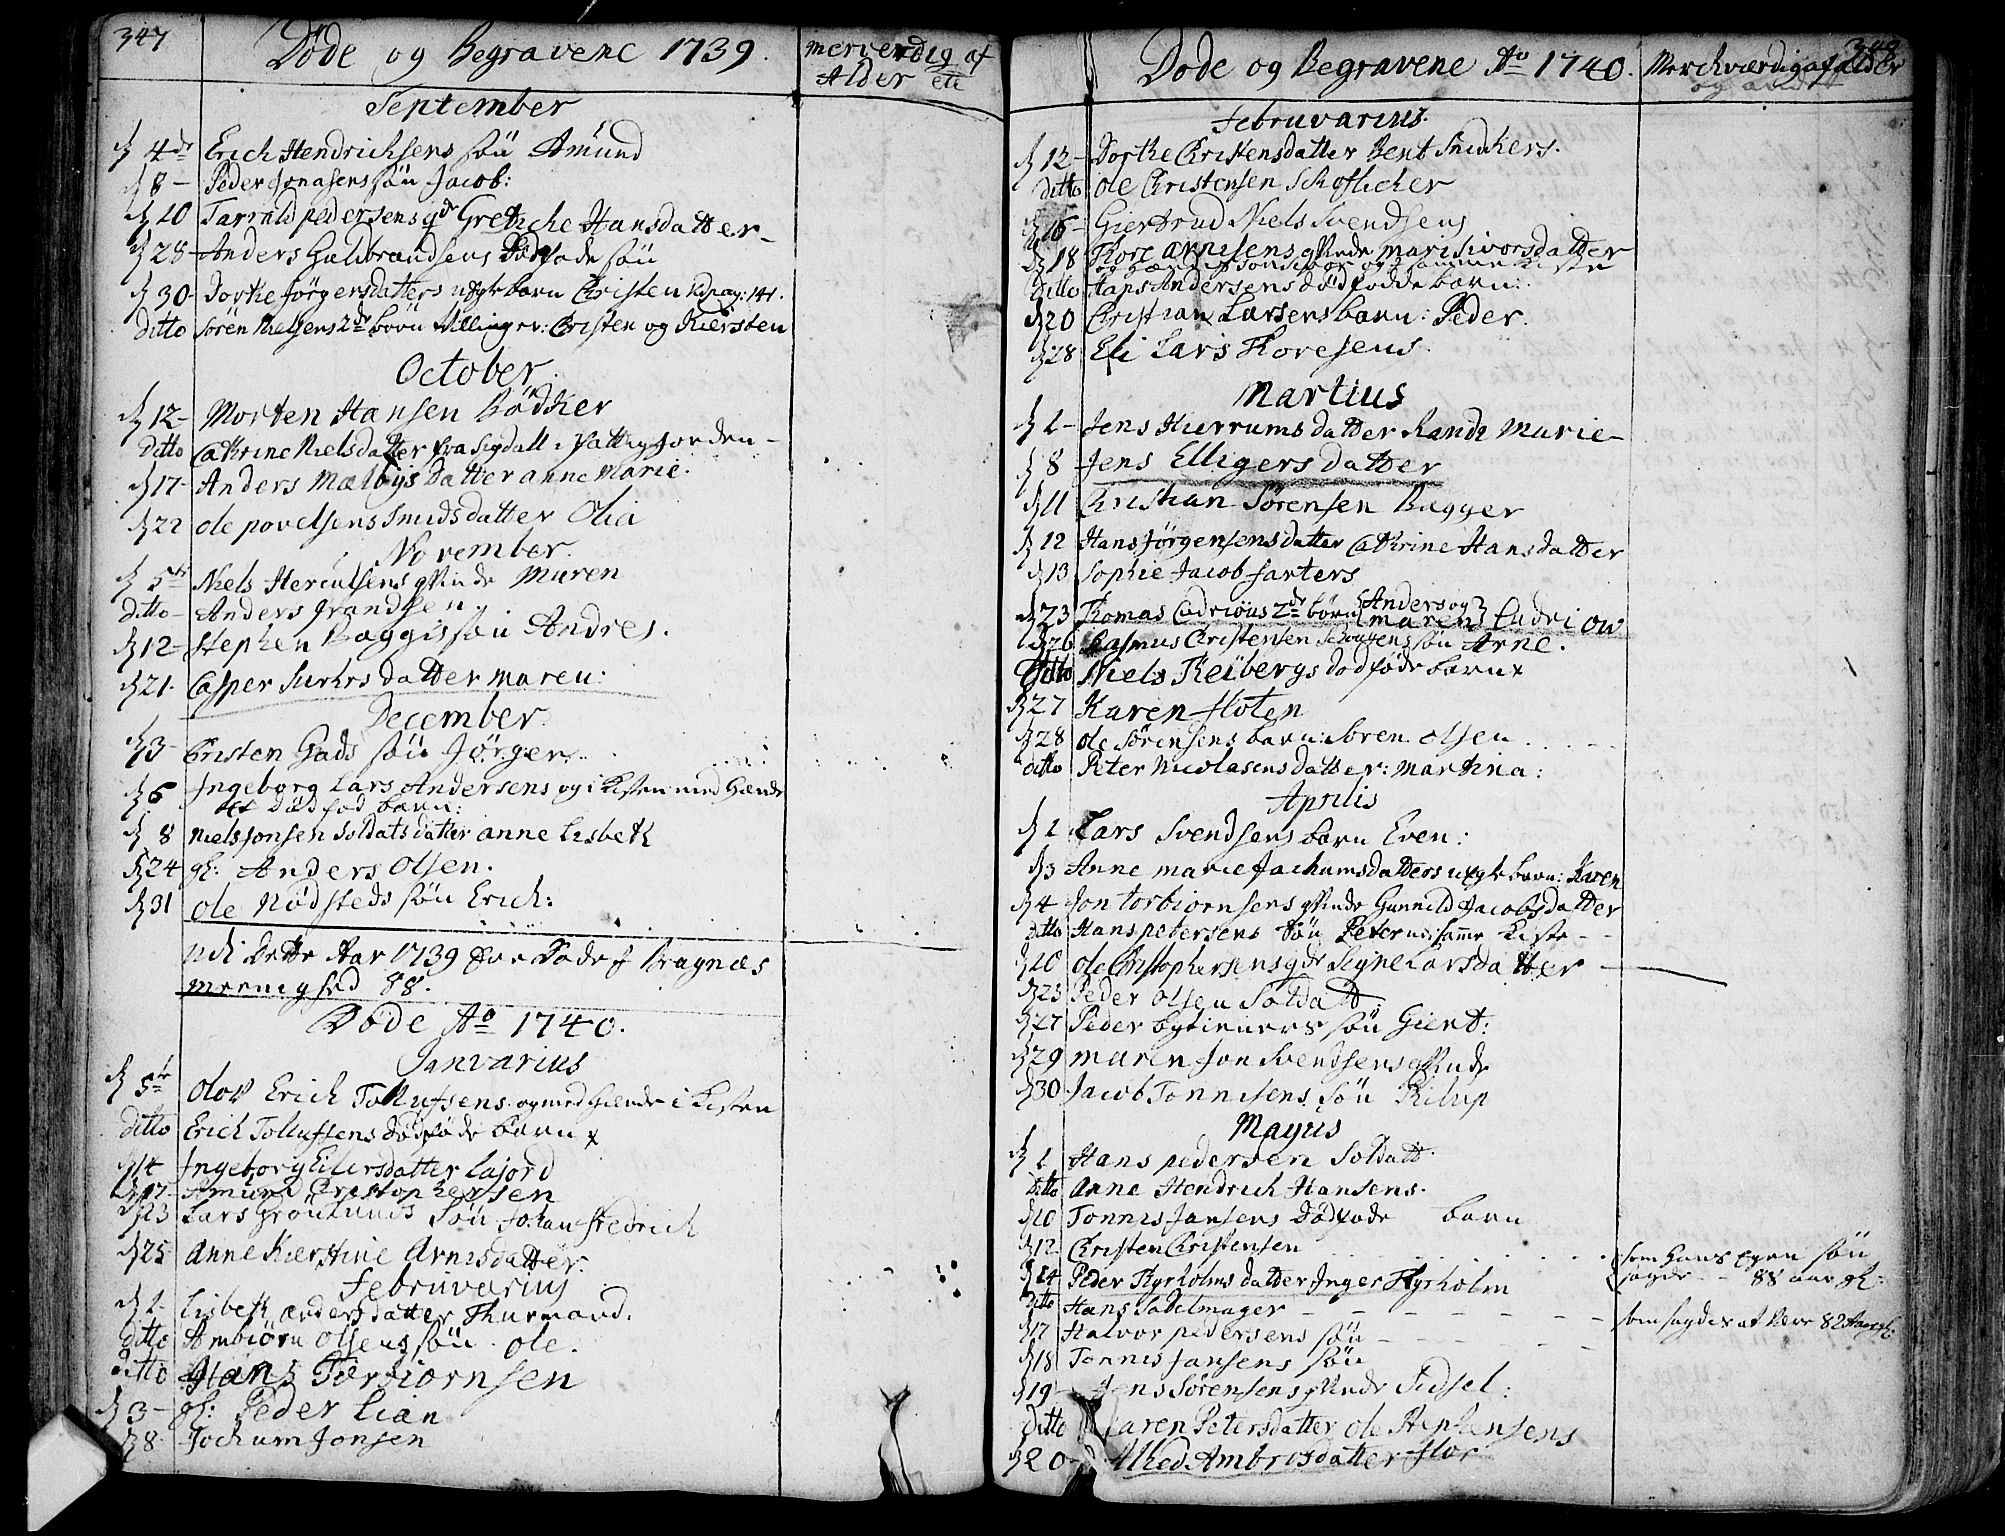 347
Døde og Begravene 1739.
merverdig af
Alder etc
September
d 4de Erich Hendrichsens søn Amund
d 8 - Peder Jonasens søn Jacob:
d 10 Tarrald pedersens qde Gretiche Hansdatter -
d 28 - Anders Gulbrandsens Dødføde søn
d 30 - Dorthe Jørgensdatters uegte barn Christen vid pag: 141.
ditto Søren Nielsens 2de børn tillinger: Cristen og Kiersten
October
d 12 - Morten Hansen Bødker
ditto Cathrine Nielsdatter fra Sigdall i fattiggaarden -
d 17 - Anders Mælbys Datter anne Marie.
d 22 ole povelsens Smids datter Olia
November.
d 5te Niels Herculsens qvinde Maren
ditto - Anders frandsen.
d 12 - Stephen Baggis søn Andres.
d 21. Casper Surkrs datter maren.
December.
d 3 - Cristen Gads søn Jørgen
d 6 Ingeborg Lars Andersens og i Kisten med Hænde
et dødfød barn:
d 8 Niels Jonsen Soldats datter anne Lisbeth
d 24 gl: Anders Olsen.
d 31 ole Nødsteds søn Erich:
udi Dette Aar 1739 Ere Døde af Bragnæs
meenighed 88.
Døde Ao 1740.
Janvarius
d 5te Olov Erich Tollufsens. og med Hænde i Kisten
ditto Erich Tollufsens Dødføde barn
d 14 Ingeborg Eilersdatter Lajord
d 17 - Amund Christophersen
d 23 Lars Grønlunds Søn Johan fredrich
d 25 Anne Kierstine Arnisdatter.
Februvarius
d 1 - Lisbeth andersdatter Thurmand.
ditto Ambiørn Olsens søn. ole.
ditto Hans Torbiørnsen
d 3 - gl: Peder Lian
d 8 - Jochum Jonsen
Døde og Begravene Ao 1740.
Merckværdig af alder
Februvarius.
d 12 - Dorthe Christensdatter Bent Snidkers.
ditto ole Christensen Skoflicker
d 16 - Giertrud Niels Svendsens
d 18 Thore Arnisens qvinde mari Sivorsdatter
ditto Hans Andersens dødfødde barn:
d 20 Christian Larsens barn: Peder.
d 28 Eli Lars Thoresens.
Martius
d 1 - Jens Kierrums datter Randi Marie -
d 8 Jens Elligers datter
d 11 Christian Sørensen Bagger
d 12 Hans Jørgensens datter Cathrine Hansdatter
d 13 Sophie Jacob farters
d 23 Thomas Cudrious 2de børn Anders og
maren Cudriow
d 26 Rasmus Christensen Schougens søn Arne.
ditto Niels Reibergs dødføde barn
d 27 Karen Floten
d 28 ole Sørensens barn: Søren olsen
ditto Peter Nicolasens datter: Martina:
Aprilis
d 1 Lars Svendsens barn Even:
d 3 Anne marie Jachumsdatters uegte barn: Karen
d 4 Jon torbiørnsens qvinde Gunnild Jacobsdatter
ditto Hans petersens søn Peter udi samme Kiste -
d 10 ole Christophersens qde Signe Larsdatter
d 23 Peder olsen Soldatt
d 27 Peder bøtieners søn Giert:
d 29 maren Jon Svendsens qvinde
d 30 Jacob Tønnisens søn Philip
Mayus
d 1 Hans pedersen Soldatt.
ditto Anne Hendrich Hansens.
d 10 Tønnis Jansens Dødføde barn
d 12 Christen Christensen
som Hans Egen søn
sagde - - 88 aar gl:
d 14 Peder Thyrholms datter Inger Thyrholm
ditto Hans Sadelmager - - - - - -
som sagdes at være 82 Aar gl:
d 17 Halvor pedersens søn - - -
d 18 Tønnis Jansens søn
d 19 - Jens Sørensens qvinde Sidsel:
ditto Maren Petersdatter ole Stephensens
d 20 - Alhed Ambrosdatter Flor